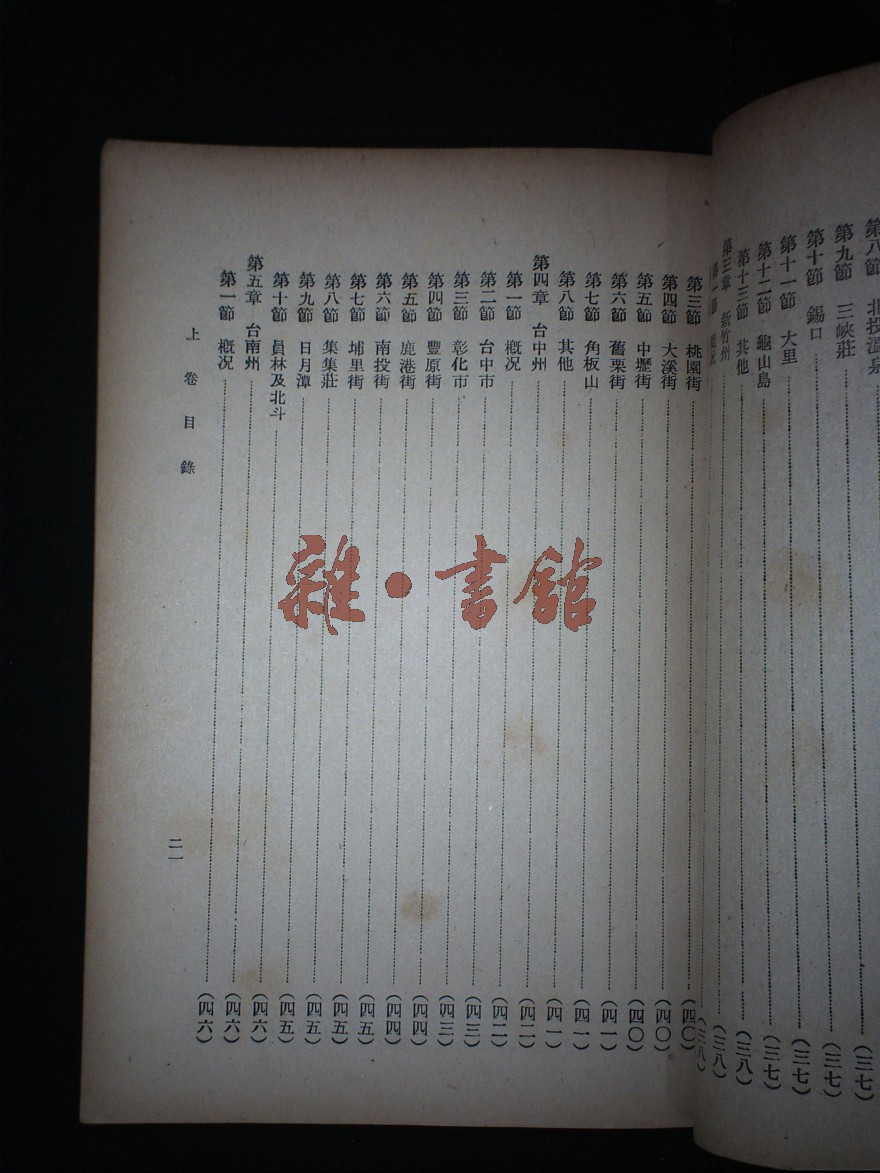 第八節 北投溫泉 (三七)
第九節 三峽莊 (三七)
第十節 錫口 (三七)
第十一節 大里 (三七)
第十二節 龜山島 (三八)
第十三節 其他 (三八)
第三章 新竹州 (三八)
第三節 桃園街 (四〇)
第四節 大溪街 (四〇)
第五節 中壢街 (四〇)
第六節 舊栗街 (四一)
第七節 角板山 (四一)
第八節 其他 (四一)
第四章 台中州 (四二)
第一節 概况 (四二)
第二節 台中市 (四三)
第三節 彰化市 (四三)
第四節 豐原街 (四四)
第五節 鹿港街 (四四)
第六節 南投街 (四五)
第七節 埔里街 (四五)
第八節 集集莊 (四五)
第九節 日月潭 (四五)
第十節 員林及北斗 (四六)
第五章 台南州 (四六)
第一節 概况 (四六)
上卷目錄
二一
雜·書館